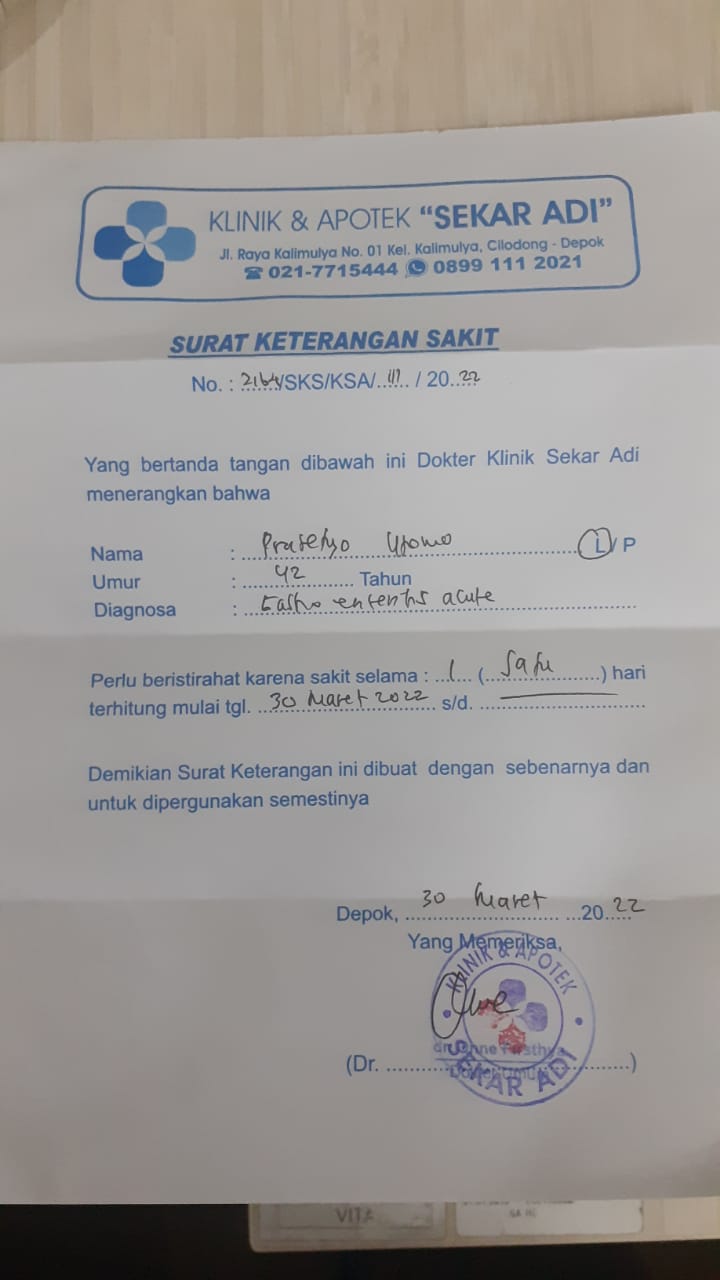 KLINIK & APOTEK "SEKAR ADI"
Jl. Raya Kalimulya No. 01 Kel. Kalimulya, Cilodong - Depok
021-7715444 0899 111 2021
SURAT KETERANGAN SAKIT
No. : 2164/SKS/KSA/ III / 20 22
Yang bertanda tangan dibawah ini Dokter Klinik Sekar Adi
menerangkan bahwa
Nama : Prasetyo Utomo L/ P
Umur : 42 Tahun
Diagnosa : acute
Perlu beristirahat karena sakit selama : 1 ( Satu ) hari
terhitung mulai tgl. 30 Maret 2022 s/d.
Demikian Surat Keterangan ini dibuat dengan sebenarnya dan
untuk dipergunakan semestinya
Depok, 30 Maret 20 22
Yang Memeriksa,
KLINIK & APOTEK
SEKAR ADI
(Dr. )
VITA